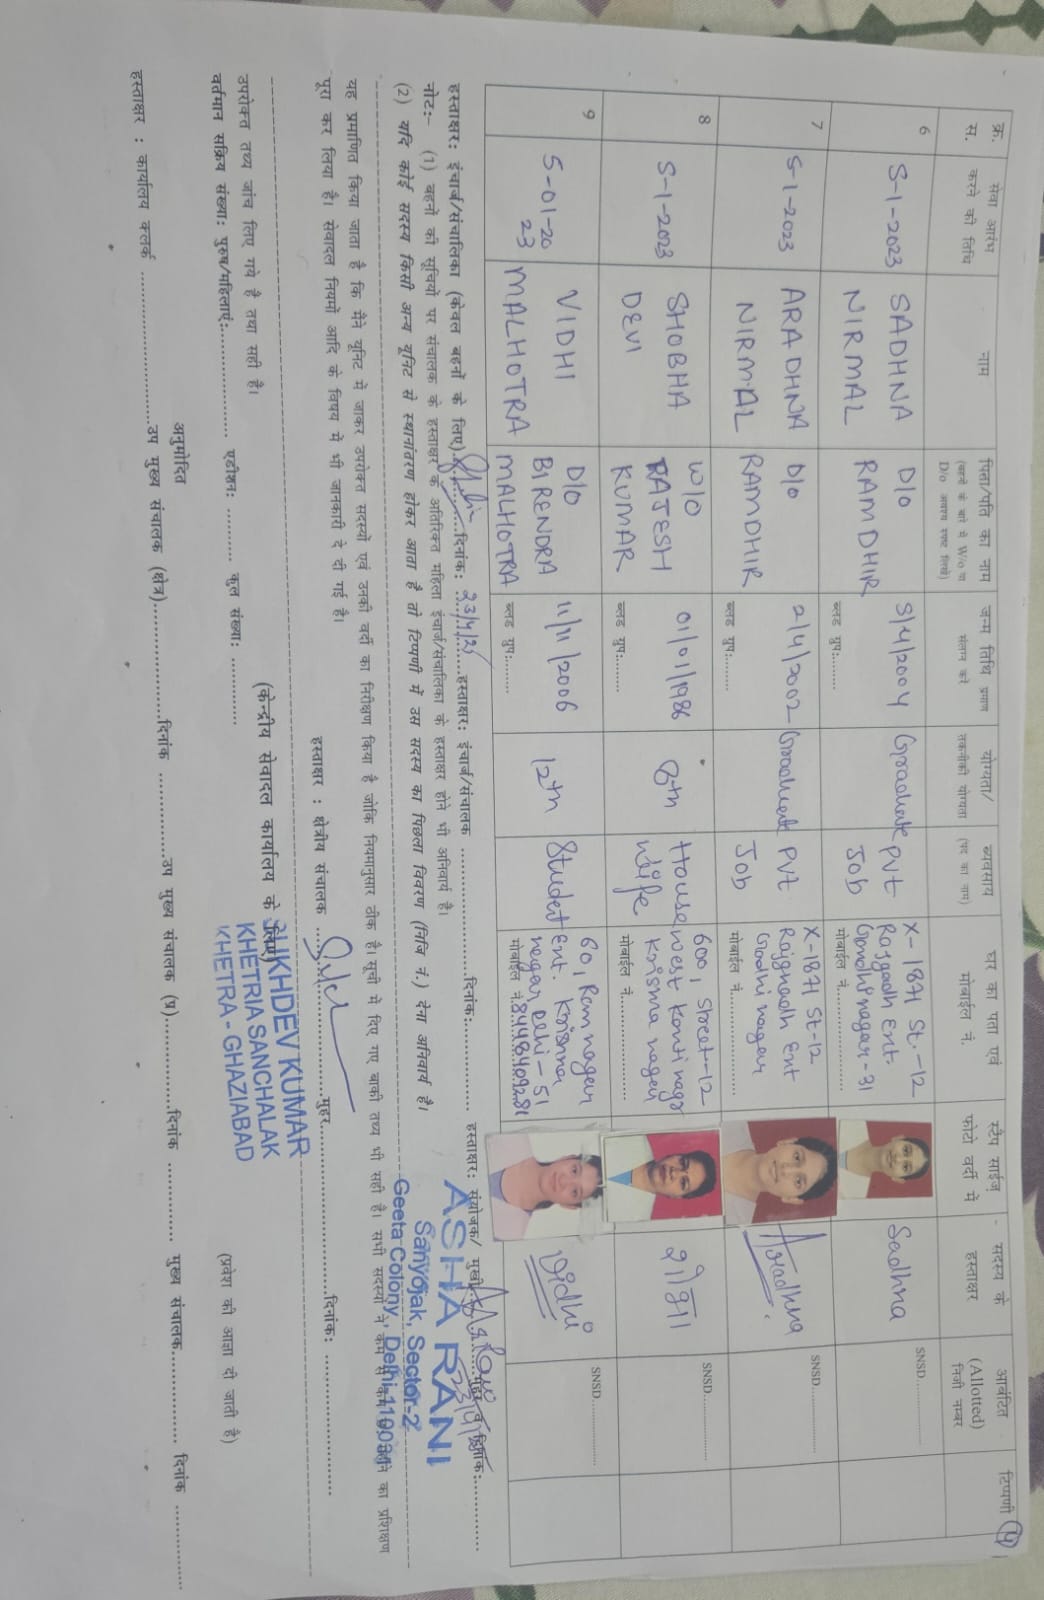 ४
क्र. स.
सेवा आरंभ करने की तिथि
नाम
पिता/पति का नाम
(बहनों के बारे में W/o या D/o अवश्य स्पष्ट लिखें)
जन्म तिथि प्रमाण संलग्न करें
योग्यता/ तकनीकी योग्यता
व्यवसाय (पद का नाम)
घर का पता एवं मोबाईल नं.
स्टैंप साईज फोटो वर्दी में
सदस्य के हस्ताक्षर
आबंटित (Allotted) निजी नम्बर
टिप्पणी
6
5-1-2023
SADHNA
NIRMAL
D/o
RAMDHIR
5/4/2004
ब्लड ग्रुप:........
Graduate
PVT
Job
X-1871 St.-12
Rajgadh Ent.
Gandhi nagar-31
मोबाईल नं...............
Sadhna
SNSD...............
7
5-1-2023
ARADHNA
NIRMAL
D/o
RAMDHIR
2/4/2002
ब्लड ग्रुप:........
Graduate
PVT
Job
X-1871 St-12
Rajgnadh Ent
Gadhi nagar
मोबाईल नं...............
Aradhna
SNSD...............
8
5-1-2023
SHOBHA
DEVI
W/O
RAJESH
KUMAR
01/01/1986
ब्लड ग्रुप:........
8th
House
Wife
600, Street-12
west Kanti nagr
Krisma nagar
मोबाईल नं...............
शोभा
SNSD...............
9
5-01-20
23
VIDHI
MALHOTRA
D/o
BIRENDRA
MALHOTRA
11/11/2006
ब्लड ग्रुप:........
12th
Student
60, Ram nagar
Ent. Krisnna
nagar Delhi-51
मोबाईल नं.8448409281
Vidhi
SNSD...............
हस्ताक्षर: इंचार्ज/संचालिका (केवल बहनों के लिए)...............दिनांक: 23/4/25 हस्ताक्षर: इंचार्ज/संचालक ...............दिनांक:............... हस्ताक्षर: संयोजक/ मुखी...............मुहर व दिनांक:...............
नोट:- (1) बहनों की सूचियों पर संचालक के हस्ताक्षर के अतिरिक्त महिला इंचार्ज/संचालिका के हस्ताक्षर होने भी अनिवार्य है।
(2) यदि कोई सदस्य किसी अन्य यूनिट से स्थानांतरण होकर आता है तो टिप्पणी में उस सदस्य का पिछला विवरण (निजि नं.) देना अनिवार्य है।
ASHA RANI
Sanyojak, Sector-2
Geeta Colony, Delhi-110031
यह प्रमाणित किया जाता है कि मैंने यूनिट में जाकर उपरोक्त सदस्यों एवं उनकी वर्दी का निरीक्षण किया है जोकि नियमानुसार ठीक है। सूची में दिए गए बाकी तथ्य भी सही है। सभी सदस्यों ने कम से कम महीने का प्रशिक्षण
पूरा कर लिया है। सेवादल नियमों आदि के विषय में भी जानकारी दे दी गई है।
हस्ताक्षर : क्षेत्रीय संचालक ...............मुहर...............दिनांक: ...............
SUKHDEV KUMAR
KHETRIA SANCHALAK
KHETRA - GHAZIABAD
(केन्द्रीय सेवादल कार्यालय के लिए)
उपरोक्त तथ्य जांच लिए गये है तथा सही है।
वर्तमान सक्रिय संख्या: पुरुष/महिलाएं:............... एडीशन: ............... कुल संख्या: ...............
(प्रवेश की आज्ञा दी जाती है)
अनुमोदित
हस्ताक्षर : कार्यालय क्लर्क ...............उप मुख्य संचालक (क्षेत्र)...............दिनांक ...............उप मुख्य संचालक (प्र)...............दिनांक ............... मुख्य संचालक............... दिनांक ...............